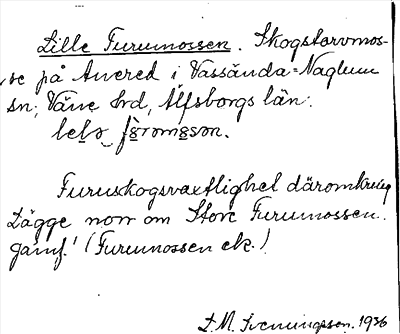 Lille Furumossen. Skogstorvmos-
se på Anered i Vassända-Naglum
sn; Väne hrd, Älfsborgs län.
Furuskogsvaxtlighet däromkring
Lägge norr om Store Furumossen.
Jämf. (Furumossen ek.)
S. M. Svenungsson. 1936